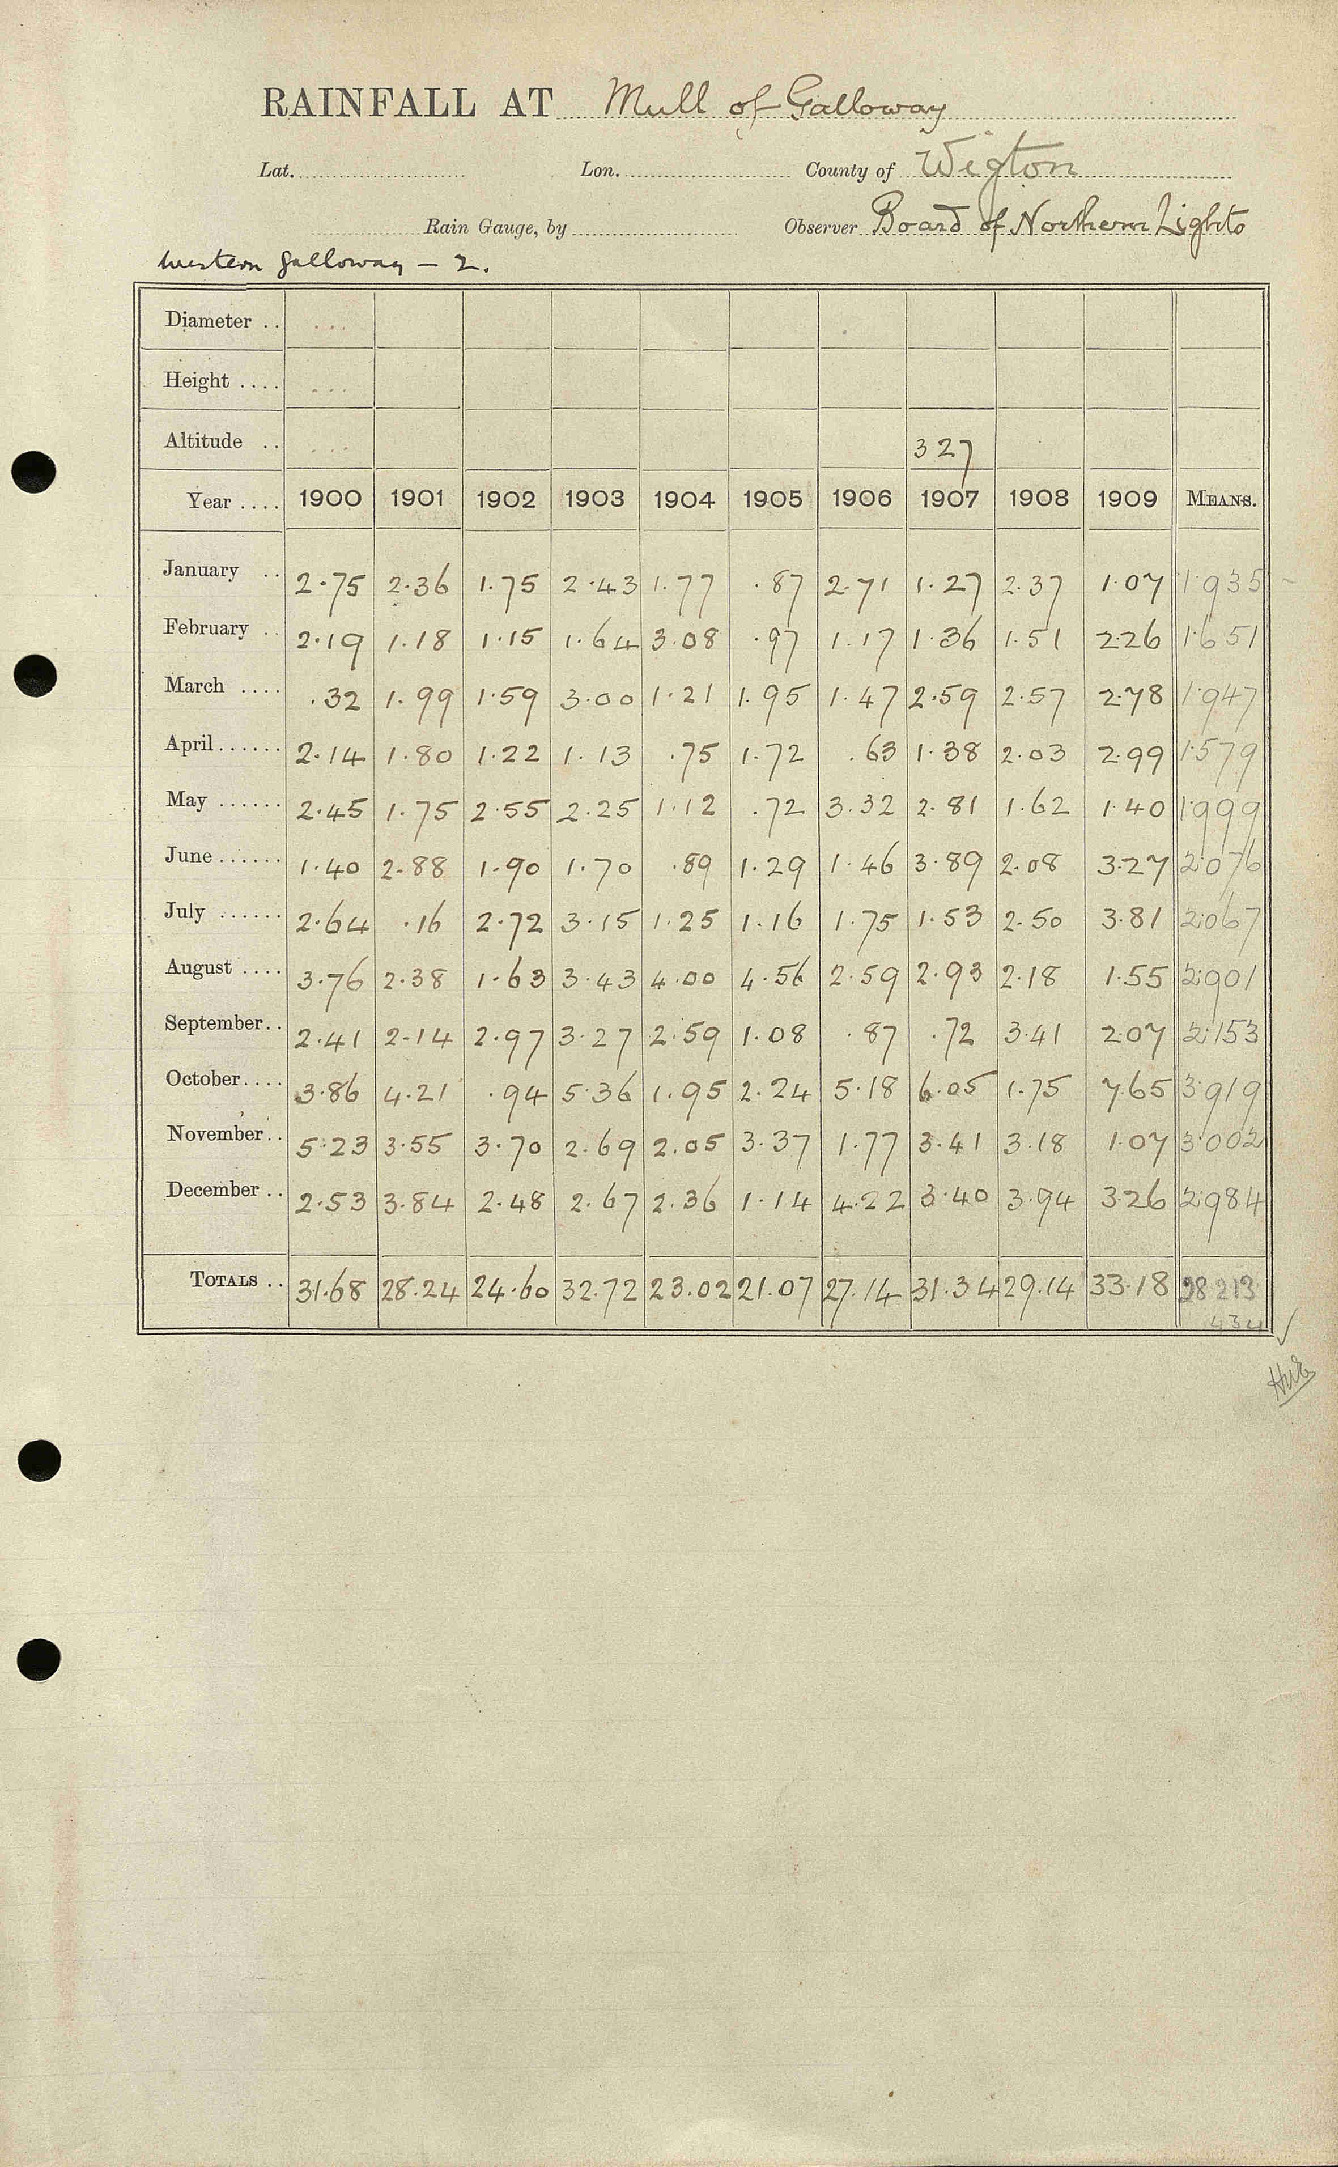 RAINFALL AT Mull of Galloway
Lat. Lon. County of Wigton
Rain Gauge, by Observer Board of Northern Lights
Western Galloway – 2.
Diameter .. ...
Height .... ...
Altitude .. ... 327
Year .... 1900 1901 1902 1903 1904 1905 1906 1907 1908 1909 MEANS.
January .. 2.75 2.36 1.75 2.43 1.77 .87 2.71 1.27 2.37 1.07 1.935
February .. 2.19 1.18 1.15 1.64 3.08 .97 1.17 1.36 1.51 2.26 1.651
March .... .32 1.99 1.59 3.00 1.21 1.95 1.47 2.59 2.57 2.78 1.947
April...... 2.14 1.80 1.22 1.13 .75 1.72 .63 1.38 2.03 2.99 1.579
May ...... 2.45 1.75 2.55 2.25 1.12 .72 3.32 2.81 1.62 1.40 1.999
June...... 1.40 2.88 1.90 1.70 .89 1.29 1.46 3.89 2.08 3.27 2.076
July ...... 2.64 .16 2.72 3.15 1.25 1.16 1.75 1.53 2.50 3.81 2.067
August .... 3.76 2.38 1.63 3.43 4.00 4.56 2.59 2.93 2.18 1.55 2.901
September.. 2.41 2.14 2.97 3.27 2.59 1.08 .87 .72 3.41 2.07 2.153
October.... 3.86 4.21 .94 5.36 1.95 2.24 5.18 6.05 1.75 7.65 3.919
November.. 5.23 3.55 3.70 2.69 2.05 3.37 1.77 3.41 3.18 1.07 3.002
December .. 2.53 3.84 2.48 2.67 2.36 1.14 4.22 3.40 3.94 3.26 2.984
TOTALS .. 31.68 28.24 24.60 32.72 23.02 21.07 27.14 31.34 29.14 33.18 28.213
434